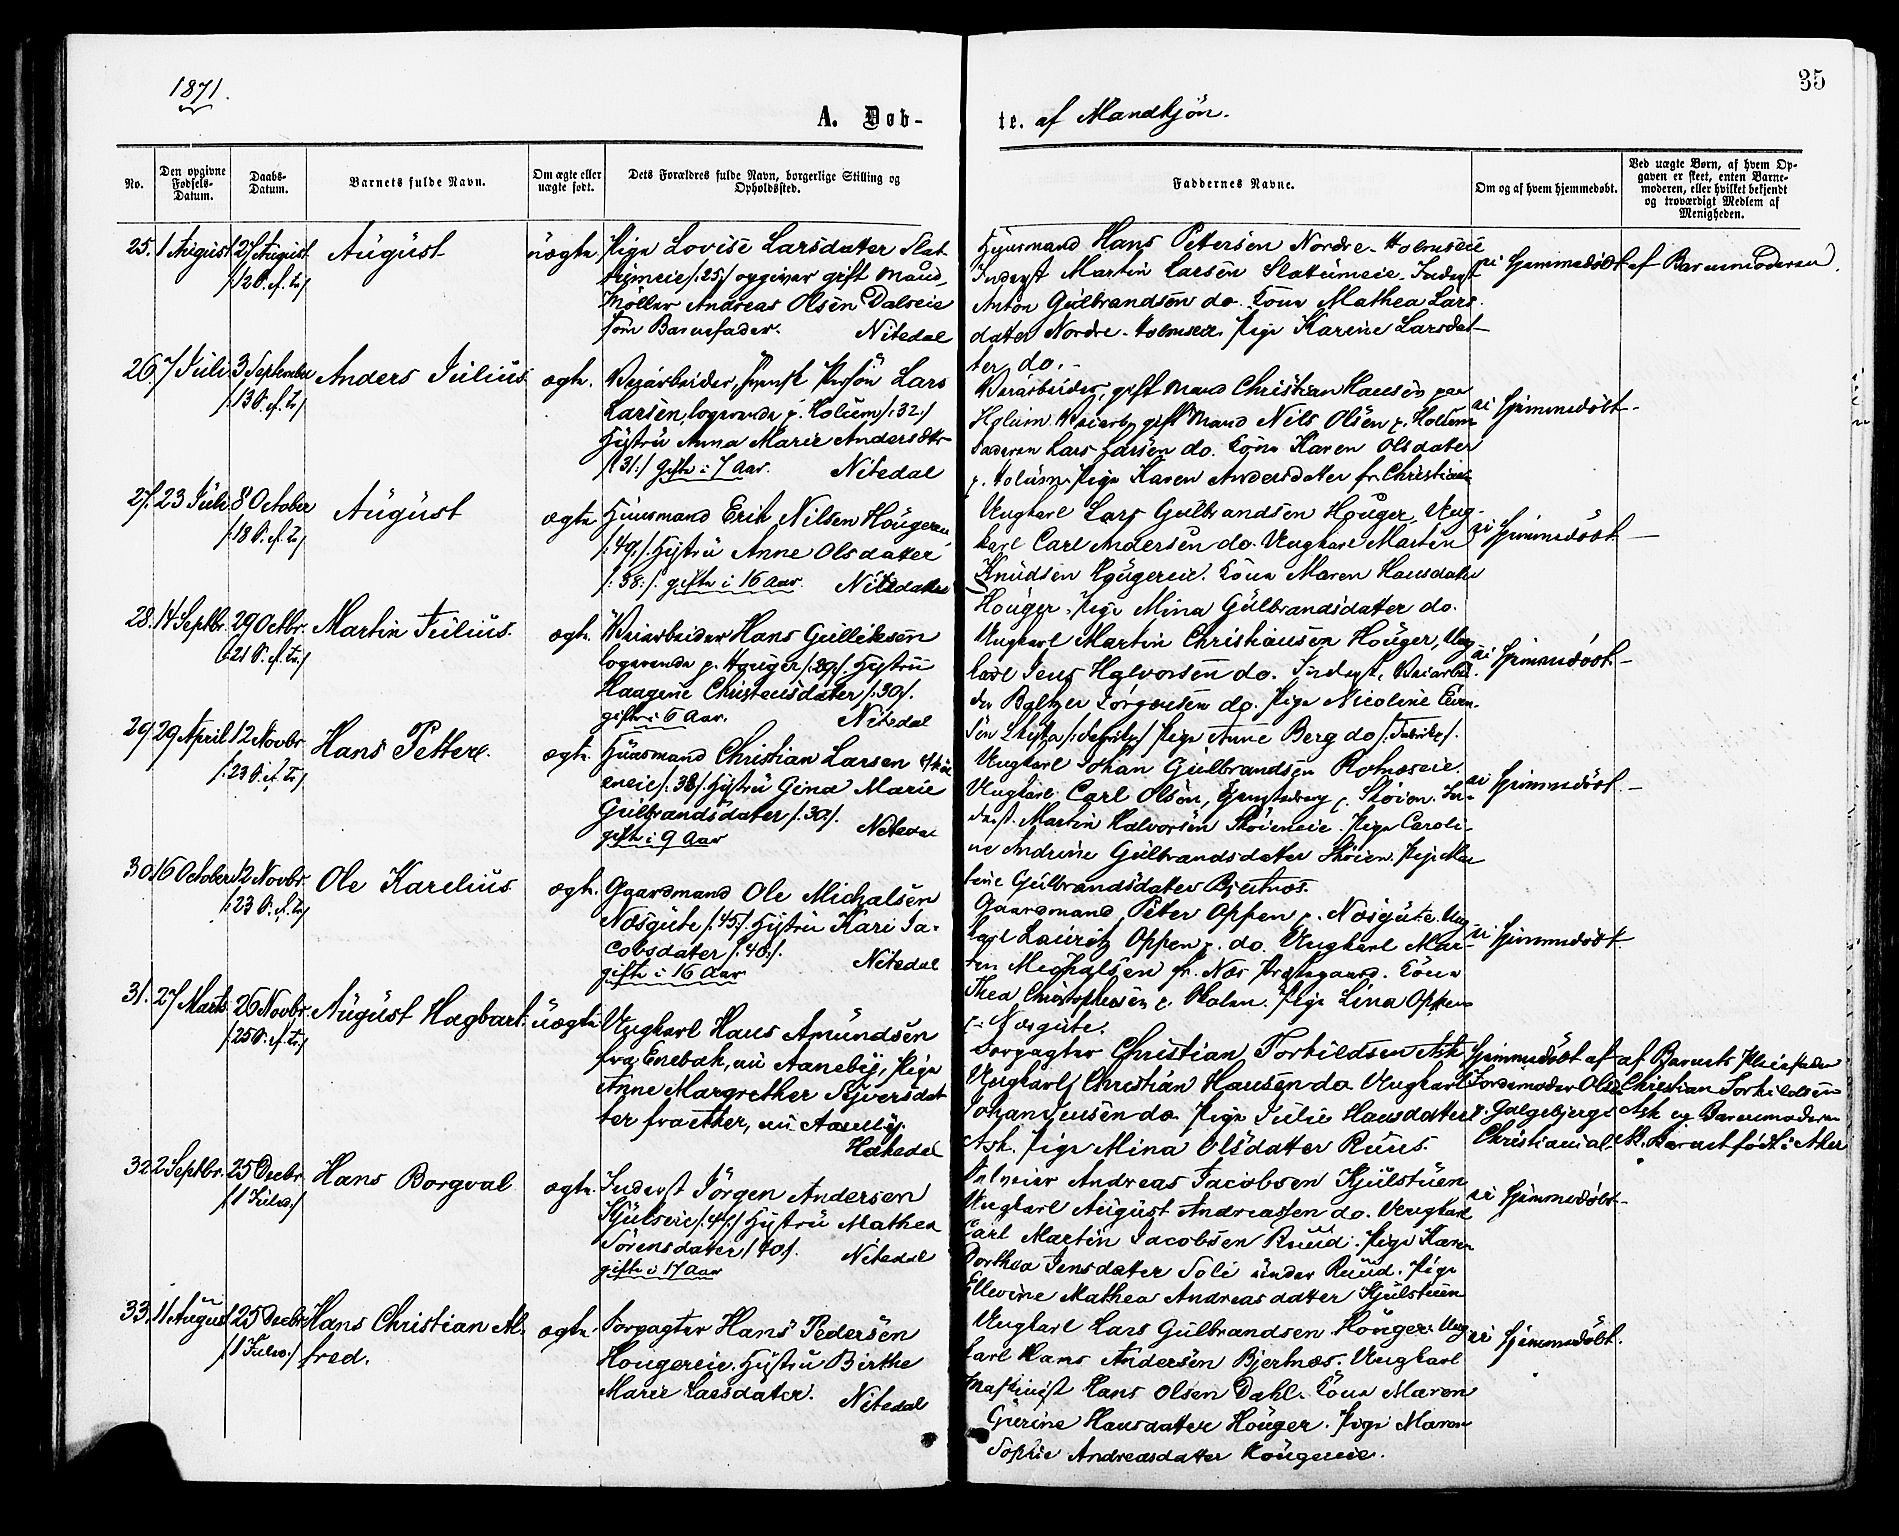 1871.
35
A. Døb-
te. af Mandkjön.
No.
Den opgivne Fødsels-Datum.
Daabs-Datum.
Barnets fulde Navn.
Om ægte eller uægte født.
Dets Forældres fulde Navn, borgerlige Stilling og Opholdssted.
Faddernes Navne.
Om og af hvem hjemmedøbt.
Ved uægte Børn, af hvem Op-
gaven er skeet, enten Barne-
moderen, eller hvilket bekjendt
og troværdigt Medlem af
Menigheden.
25. 1 August 27 August August uægte Pige Lovise Larsdatter Slat-
/:12 S. ef. Tr:/ tumeie /:25:/ opgiver gift Mand,
Möller Andreas Olsen Dalseie
som Barnefader. Nitedal
Huusmand Hans Petersen Nordre-Holmseie
Inderst Martin Larsen Slatumeie. Inderst
Anton Gulbrandsen do. Kone Mathea Lars-
datter Nordre-Holmseie. Pige Karine Larsdat-
ter do.
ei hjemmedöbt
af Barnemoderen.
26. 7 Juli 3 September Anders Julius ægte. Veiarbeider, svensk Person Lars
/:13 S. ef. Tr:/ Larsen, logerende p. Holum /:32:/
Hustru Anna Marie Andersdtr
/:31:/ gifte i 7 Aar. Nitedal
Veiarbeider, gift Mand Christian Hansen paa
Holum. Veiarb. gift Mand Nils Olsen p. Holum
Faderen Lars Larsen do. Kone Karen Olsdatter
p. Holum. Pige Karen Andersdatter fr. Christiania
ei hjemmedöbt.
27. 23 Juli 8 October August ægte Huusmand Erik Nilsen Hougereie
/:18 S. ef. Tr:/ /:49:/. Hustru Anne Olsdatter
/:38:/. gifte i 16 Aar. Nitedal
Ungkarl Lars Gulbrandsen Houger, Ung-
karl Carl Andersen do. Ungkarl Martin
Knudsen Hougereie. Kone Maren Hansdatter
Houger. Pige Mina Gulbrandsdatter do.
ei hjemmedöbt
28. 14 Septbr. 29 Octbr. Martin Julius. ægte. Veiarbeider Hans Gulliksen
/:21 S. ef. Tr:/ logerende p. Houger /:29:/ Hustru
Haagine Christensdatter /:30:/.
gifte i 6 Aar. Nitedal
Ungkarl Martin Christiansen Houger, Ung-
karl Jens Halvorsen do. Inderst, Veiarbei-
der Baltzer Jörgensen do. Pige Nicoline Even-
sen /:Fabrikp:/ Pige Anne Berg do /:Fabrikp:/.
ei hjemmedöbt
29 29 April 12 Novbr. Hans Petter. ægte. Huusmand Christian Larsen Sköi-
/:23 S. ef. Tr:/ eneie /:38:/. Hustru Gina Marie
Gulbrandsdatter /:30:/.
gifte i 9 Aar Nitedal
Ungkarl Johan Gulbrandsen Rotnæseie.
Ungkarl Carl Olsen, p. Sköien. In-
derst. Martin Halvorsen Sköieneie. Pige Caroli-
ne Andrine Gulbrandsdatter Sköien. Pige Mar-
tine Gulbrandsdatter Bjertnæs.
ei hjemmedöbt
30. 16 October 12 Novbr. Ole Karelius ægte. Gaardmand Ole Michalsen
/:23 S. ef. Tr:/ Næsgute /:45:/. Hustru Kari Ja-
cobsdatter /:40:/.
gifte i 16 Aar Nitedal
Gaardmand Peter Oppen p. Næsgute. Ung-
karl Lauritz Oppen p. do. Ungkarl Mar-
ten Michalsen fr. Næs Præstegaard. Kone
Thea Christophersen p. Holm. Pige Lina Oppen
p. Næsgute.
ei hjemmedöbt
31. 27 Marts 26 Novbr. August Hagbart. uægte Ungkarl Hans Amundsen
/:25 S. ef. Tr:/ fra Enebak, nu Aaneby, Pige
Anne Margrethe Syversdat-
ter fra ether, nu Aaneby.
Hakedal
Forpagter Christian Torkildsen Ask
Ungkarl Christian Hansen do. Ungkarl
Johan Jensen do. Pige Julie Hansdatter
Ask. Pige Mina Olsdatter Ruus.
hjemmedöbt af
Jordemoder Olsen
p. Galgebjerg
Christiania
af Barnets Pleiefader
Christian Torkildsen
Ask og Barnemoderen
NB. Barnet født i Aker
32 2 Septbr. 25 Decbr. Hans Borgval ægte. Inderst Jörgen Andersen
/:1 Juled:/ Kjulseie /:44:/ Hustru Mathea
Sörensdatter /:40:/.
gifte i 17 Aar Nitedal
Andreas Jacobsen Kjulstuen
Ungkarl August Andreassen do. Ungkarl
Carl Martin Jacobsen Ruud. Pige Karen
Dorthea Jensdatter Soli under Ruud. Pige
Ellevine Mathea Andreasdatter Kjulstuen
ei hjemmedöbt
33. 11 August 25 Decbr. Hans Christian Al- ægte. Forpagter Hans Pedersen
/:1 Juled:/ fred. Hougereie. Hustru Birthe
Marie Larsdatter. Nitedal
Ungkarl Lars Gulbrandsen Houger. Ung-
karl Hans Andersen Bjertnæs. Ungkarl
Maskinist Hans Olsen Dahl. Kone Maren
Gurine Hansdatter Houger. Pige Maren
Sophie Andreasdatter Hougereie.
ei hjemmedöbt.